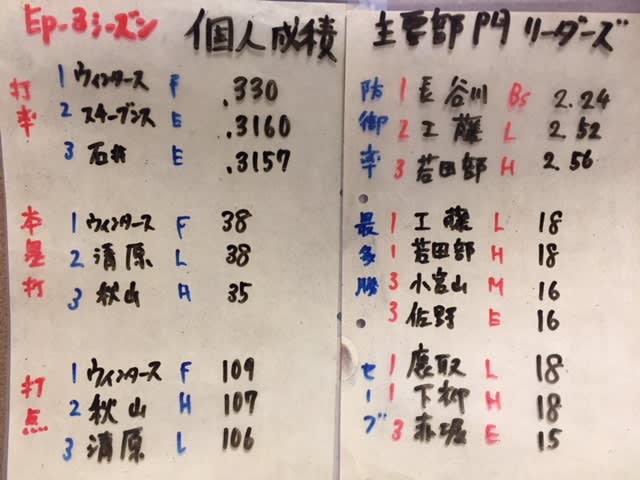 Ep.3シーズン 個人成績
打率
1 ウィンタース F .330
2 スチーブンス E .3160
3 石井 E .3157
本塁打
1 ウィンタース F 38
2 清原 L 38
3 秋山 H 35
打点
1 ウィンタース F 109
2 秋山 H 107
3 清原 L 106
主要部門リーダーズ
防御率
1 長谷川 Bs 2.24
2 工藤 L 2.52
3 若田部 H 2.56
最多勝
1 工藤 L 18
1 若田部 H 18
3 小宮山 M 16
3 佐野 E 16
セーブ
1 鹿取 L 18
1 下柳 H 18
3 赤堀 E 15